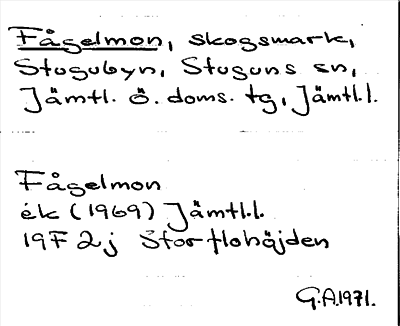 Fågelmon, skogsmark,
Stugubyn, Stuguns sn,
Jämtl. ö. doms. tg, Jämtl.l.
Fågelmon
ek (1969) Jämtl.l.
19F 2j Storflohöjden
G.A.1971.